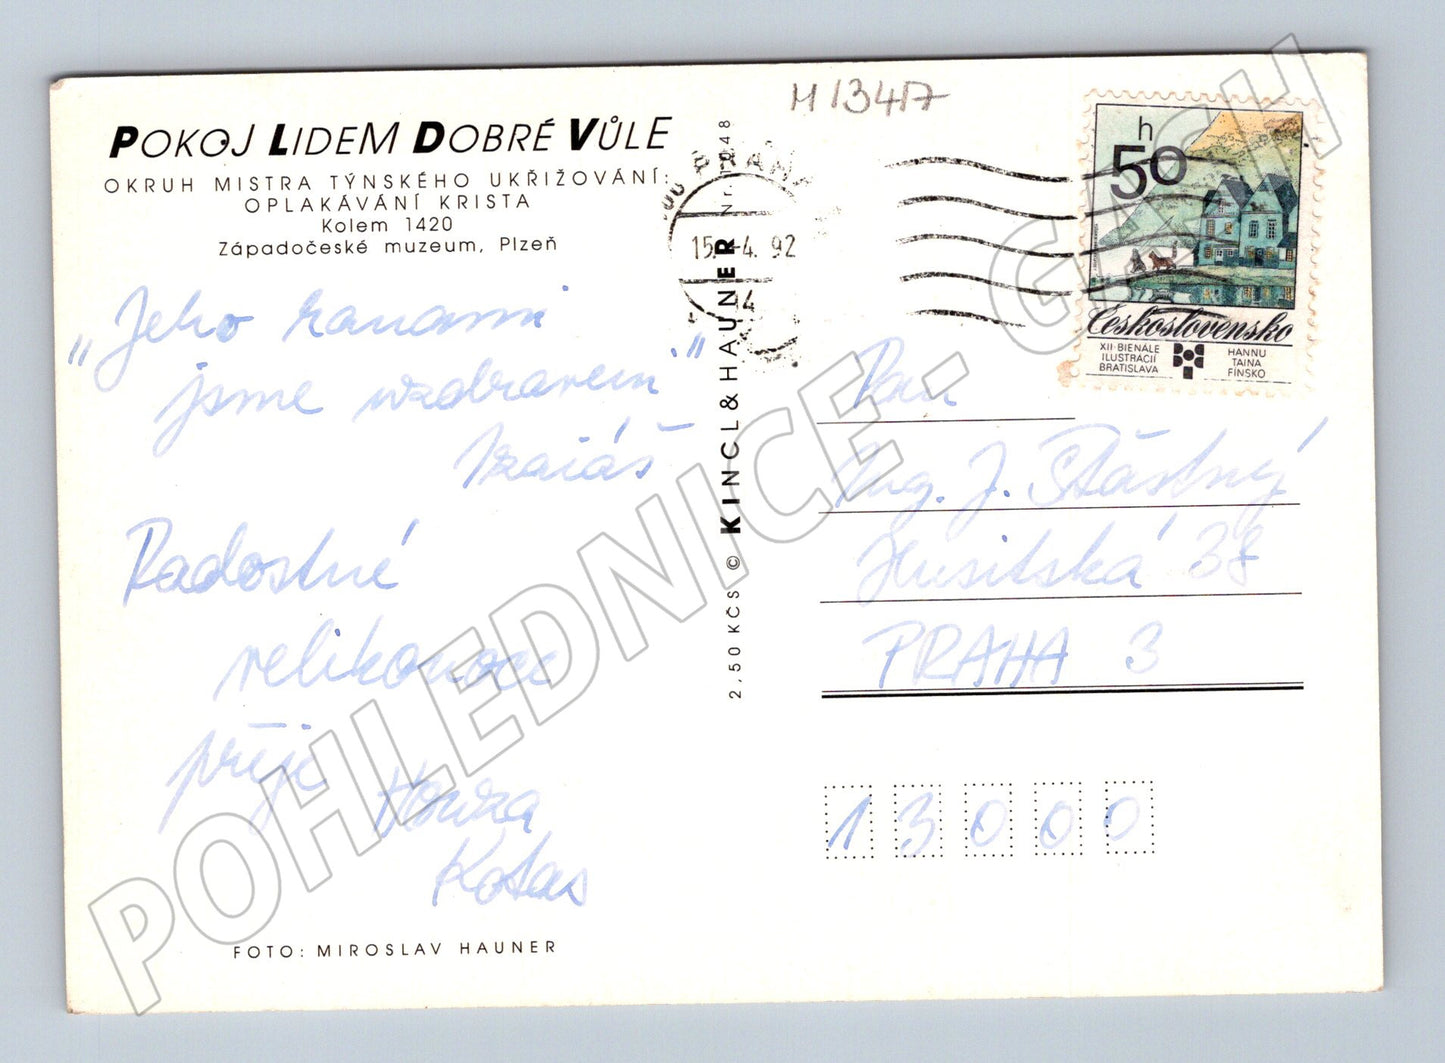 M 13417
POKOJ LIDEM DOBRÉ VŮLE
OKRUH MISTRA TÝNSKÉHO UKŘIŽOVÁNÍ:
OPLAKÁVÁNÍ KRISTA
Kolem 1420
Západočeské muzeum, Plzeň
„Jeho ranami
jsme uzdraveni."
Izaiáš
Radostné
velikonoce
přeje
Kotas
FOTO: MIROSLAV HAUNER
2,50 KČS © KINCL & HAUNER Nr. 1048
PRAHA
15.-4. 92
14
h
50
Československo
XII·BIENÁLE
ILUSTRÁCIÍ
BRATISLAVA
HANNU
TAINA
FÍNSKO
Pan
Ing. J. Šťastný
Husitská 38
PRAHA 3
13000
POHLEDNICE - GASH